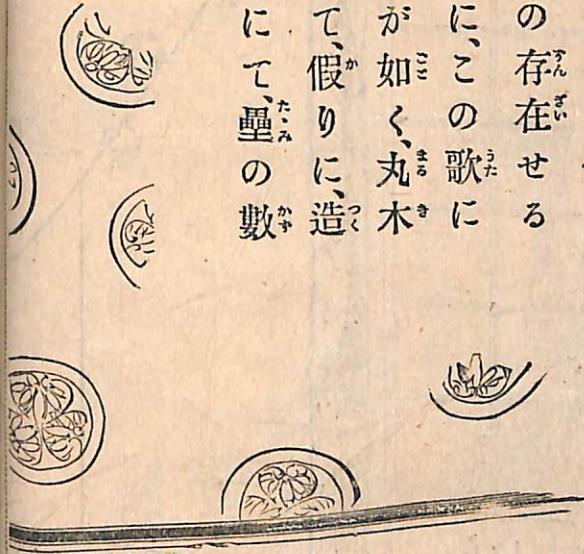 の存在せる
に、この歌に
が如く、丸木
て、假りに、造
にて、疊の數